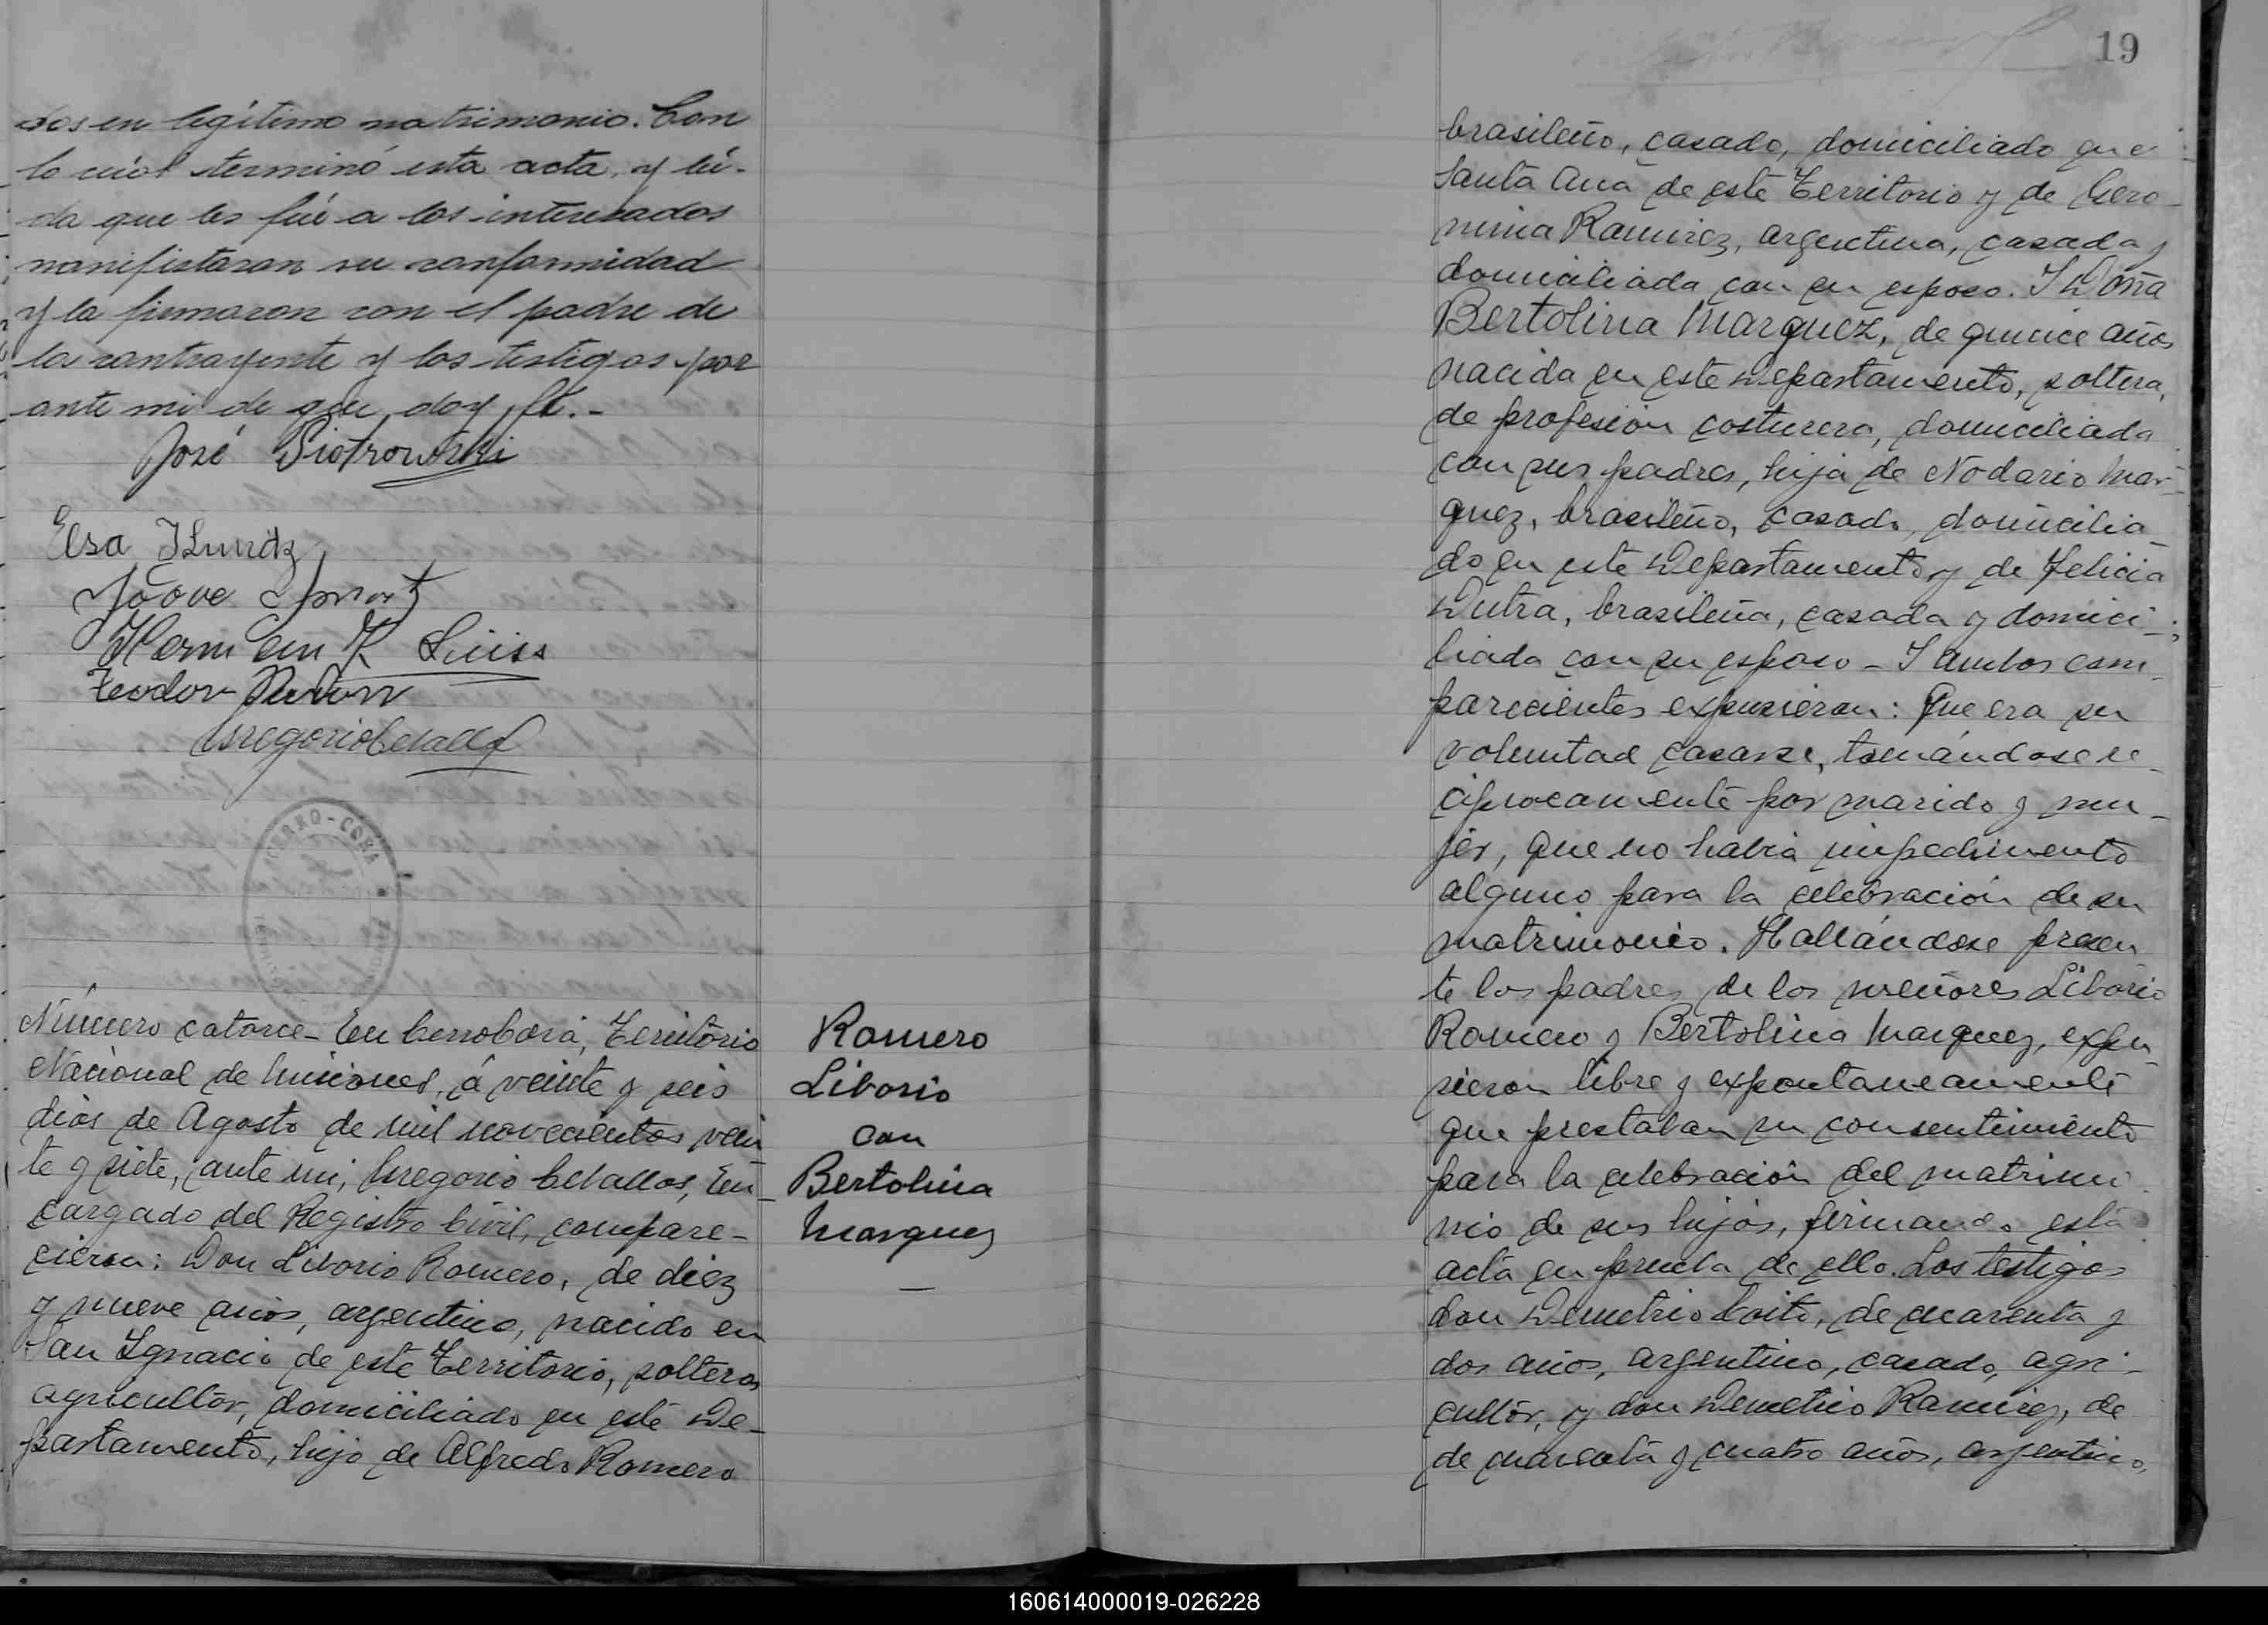 dos en legítimo matrimonio. Con
lo cuál terminó esta acta, y leí-
da que les fué a los interesados
manifestaron su conformidad
y la firmaron con el padre de
la contrayente y los testigos por
ante mi de que doy fé.-
José Piotrowski
Elsa
Teodor
Gregorio Cevallos
CERRO-CORA
Número catorce - En Cerro Corá, Territorio
Nacional de Misiones, á veinte y seis
dias de Agosto de mil novecientos vein
te y siete, ante mi, Gregorio Cevallos, En-
cargado del Registro Civil, compare-
cieron: Don Liborio Romero, de diez
y nueve años, argentino, nacido en
San Ignacio de este Territorio, soltero,
agricultor, domiciliado en este De-
partamento, hijo de Alfredo Romero
Romero
Liborio
con
Bertolina
Marquez
19
brasileño, casado, domiciliado en
Santa Ana de este Territorio y de Gero-
nima Ramirez, argentina, casada y
domiciliada con su esposo. Y Doña
Bertolina Marquez, de quince años
nacida en este Departamento, soltera,
de profesión costurera, domiciliada
con sus padres, hija de Nodario Mar-
quez, brasileño, casado, domicilia-
do en este Departamento y de Felicia
Dutra, brasileña, casada y domici-
liada con su esposo - Y ambos com-
parecientes expusieron: Que era su
voluntad casarse, tomándose re-
ciprocamente por marido y mu-
jer, que no había impedimento
alguno para la celebración de su
matrimonio. Hallándose presen
te los padres de los menores Liborio
Romero y Bertolina Marquez, expu-
sieron libre y expontaneamente
que prestaban su consentimiento
para la celebración del matrimo-
nio de sus hijos, firmando esta
acta en prueba de ello. Los testigos
don Demetrio Coito, de cuarenta y
dos años, argentino, casado, agri-
cultor, y don Demetrio Ramirez, de
de cuarenta y cuatro años, argentino,
160614000019-026228